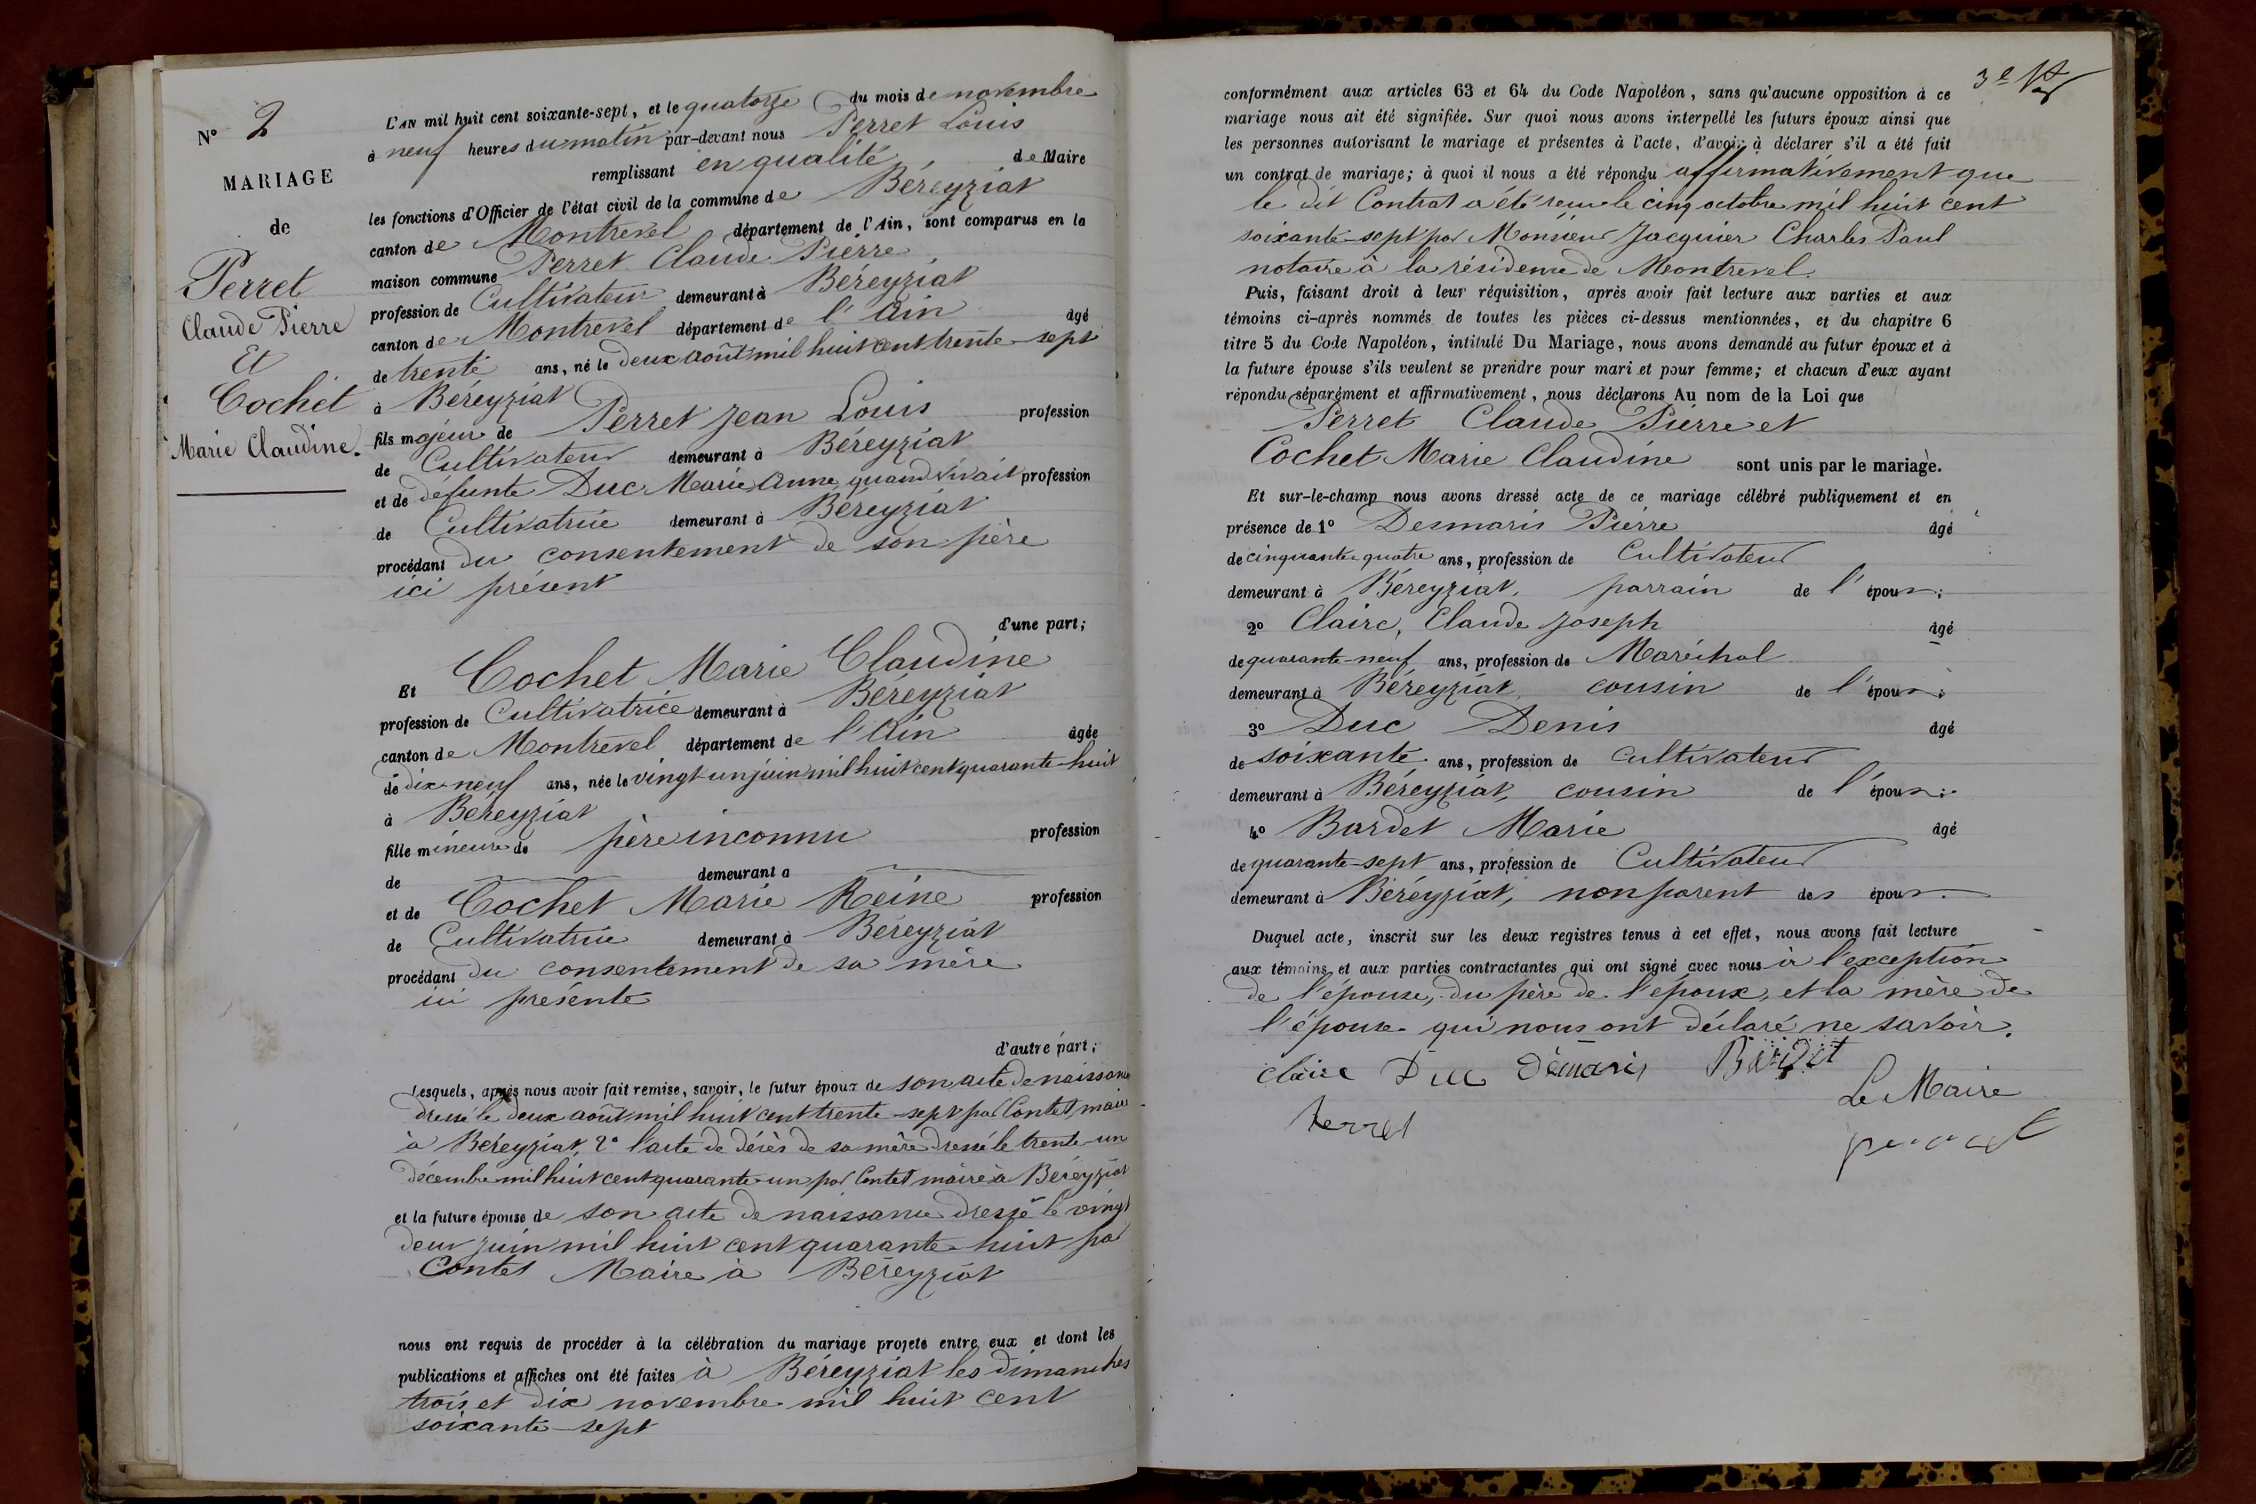 N° 2
MARIAGE
de
Perret
Claude Pierre
Et
Cochet
Marie Claudine.
L'AN mil huit cent soixante-sept, et le quatorze du mois de novembre
à neuf heures du matin par-devant nous Perret Louis
remplissant en qualité de Maire
les fonctions d'Officier de l'état civil de la commune de Béreyziat
canton de Montrevel département de l'Ain, sont comparus en la
maison commune Perret Claude Pierre
profession de Cultivateur demeurant à Béreyziat
canton de Montrevel département de l'Ain âgé
de trente ans, né le deux août mil huit cent trente-sept
à Béreyziat
fils majeur de Perret Jean Louis profession
de Cultivateur demeurant à Béreyziat
et de défunte Duc Marie Anne quand vivait profession
de Cultivatrice demeurant à Béreyziat
procédant du consentement de son père
ici présent
d'une part;
Et Cochet Marie Claudine
profession de Cultivatrice demeurant à Béreyziat
canton de Montrevel département de l'Ain âgée
de dix-neuf ans, née le vingt-un juin mil huit cent quarante-huit
à Béreyziat
fille mineure de père inconnu profession
de demeurant à
et de Cochet Marie Reine profession
de Cultivatrice demeurant à Béreyziat
procédant du consentement de sa mère
ici présente
d'autre part;
Lesquels, après nous avoir fait remise, savoir, le futur époux de son acte de naissance
dressé le deux août mil huit cent trente-sept par Contet, maire
à Béreyziat, 2° l'acte de décès de sa mère dressé le trente-un
décembre mil huit cent quarante-un par Contet maire à Béreyziat
et la future épouse de son acte de naissance dressé le vingt
deux juin mil huit cent quarante-huit par
Contet Maire à Béreyziat
nous ont requis de procéder à la célébration du mariage projeté entre eux et dont les
publications et affiches ont été faites à Béreyziat les dimanches
trois et dix novembre mil huit cent
soixante-sept
3e
conformément aux articles 63 et 64 du Code Napoléon, sans qu'aucune opposition à ce
mariage nous ait été signifiée. Sur quoi nous avons interpellé les futurs époux ainsi que
les personnes autorisant le mariage et présentes à l'acte, d'avoir à déclarer s'il a été fait
un contrat de mariage; à quoi il nous a été répondu affirmativement que
le dit Contrat a été reçu le cinq octobre mil huit cent
soixante-sept par Monsieur Jacquier Charles Paul
notaire à la résidence de Montrevel.
Puis, faisant droit à leur réquisition, après avoir fait lecture aux parties et aux
témoins ci-après nommés de toutes les pièces ci-dessus mentionnées, et du chapitre 6
titre 5 du Code Napoléon, intitulé Du Mariage, nous avons demandé au futur époux et à
la future épouse s'ils veulent se prendre pour mari et pour femme; et chacun d'eux ayant
répondu séparément et affirmativement, nous déclarons Au nom de la Loi que
Perret Claude Pierre et
Cochet Marie Claudine sont unis par le mariage.
Et sur-le-champ nous avons dressé acte de ce mariage célébré publiquement et en
présence de 1° Desmaris Pierre âgé
de cinquante-quatre ans, profession de Cultivateur
demeurant à Béreyziat, parrain de l'époux;
2° Claire, Claude Joseph âgé
de quarante-neuf ans, profession de Maréchal
demeurant à Béreyziat cousin de l'époux;
3° Duc Denis âgé
de soixante ans, profession de Cultivateur
demeurant à Béreyziat, cousin de l'époux;
4° Bardet Marie âgé
de quarante-sept ans, profession de Cultivateur
demeurant à Béreyziat, non parent des époux.
Duquel acte, inscrit sur les deux registres tenus à cet effet, nous avons fait lecture
aux témoins et aux parties contractantes qui ont signé avec nous à l'exception
de l'épouse, du père de l'époux, et la mère de
l'épouse qui nous ont déclaré ne savoir.
Claire Duc Démaris Bardet
Le Maire
Perret
perret